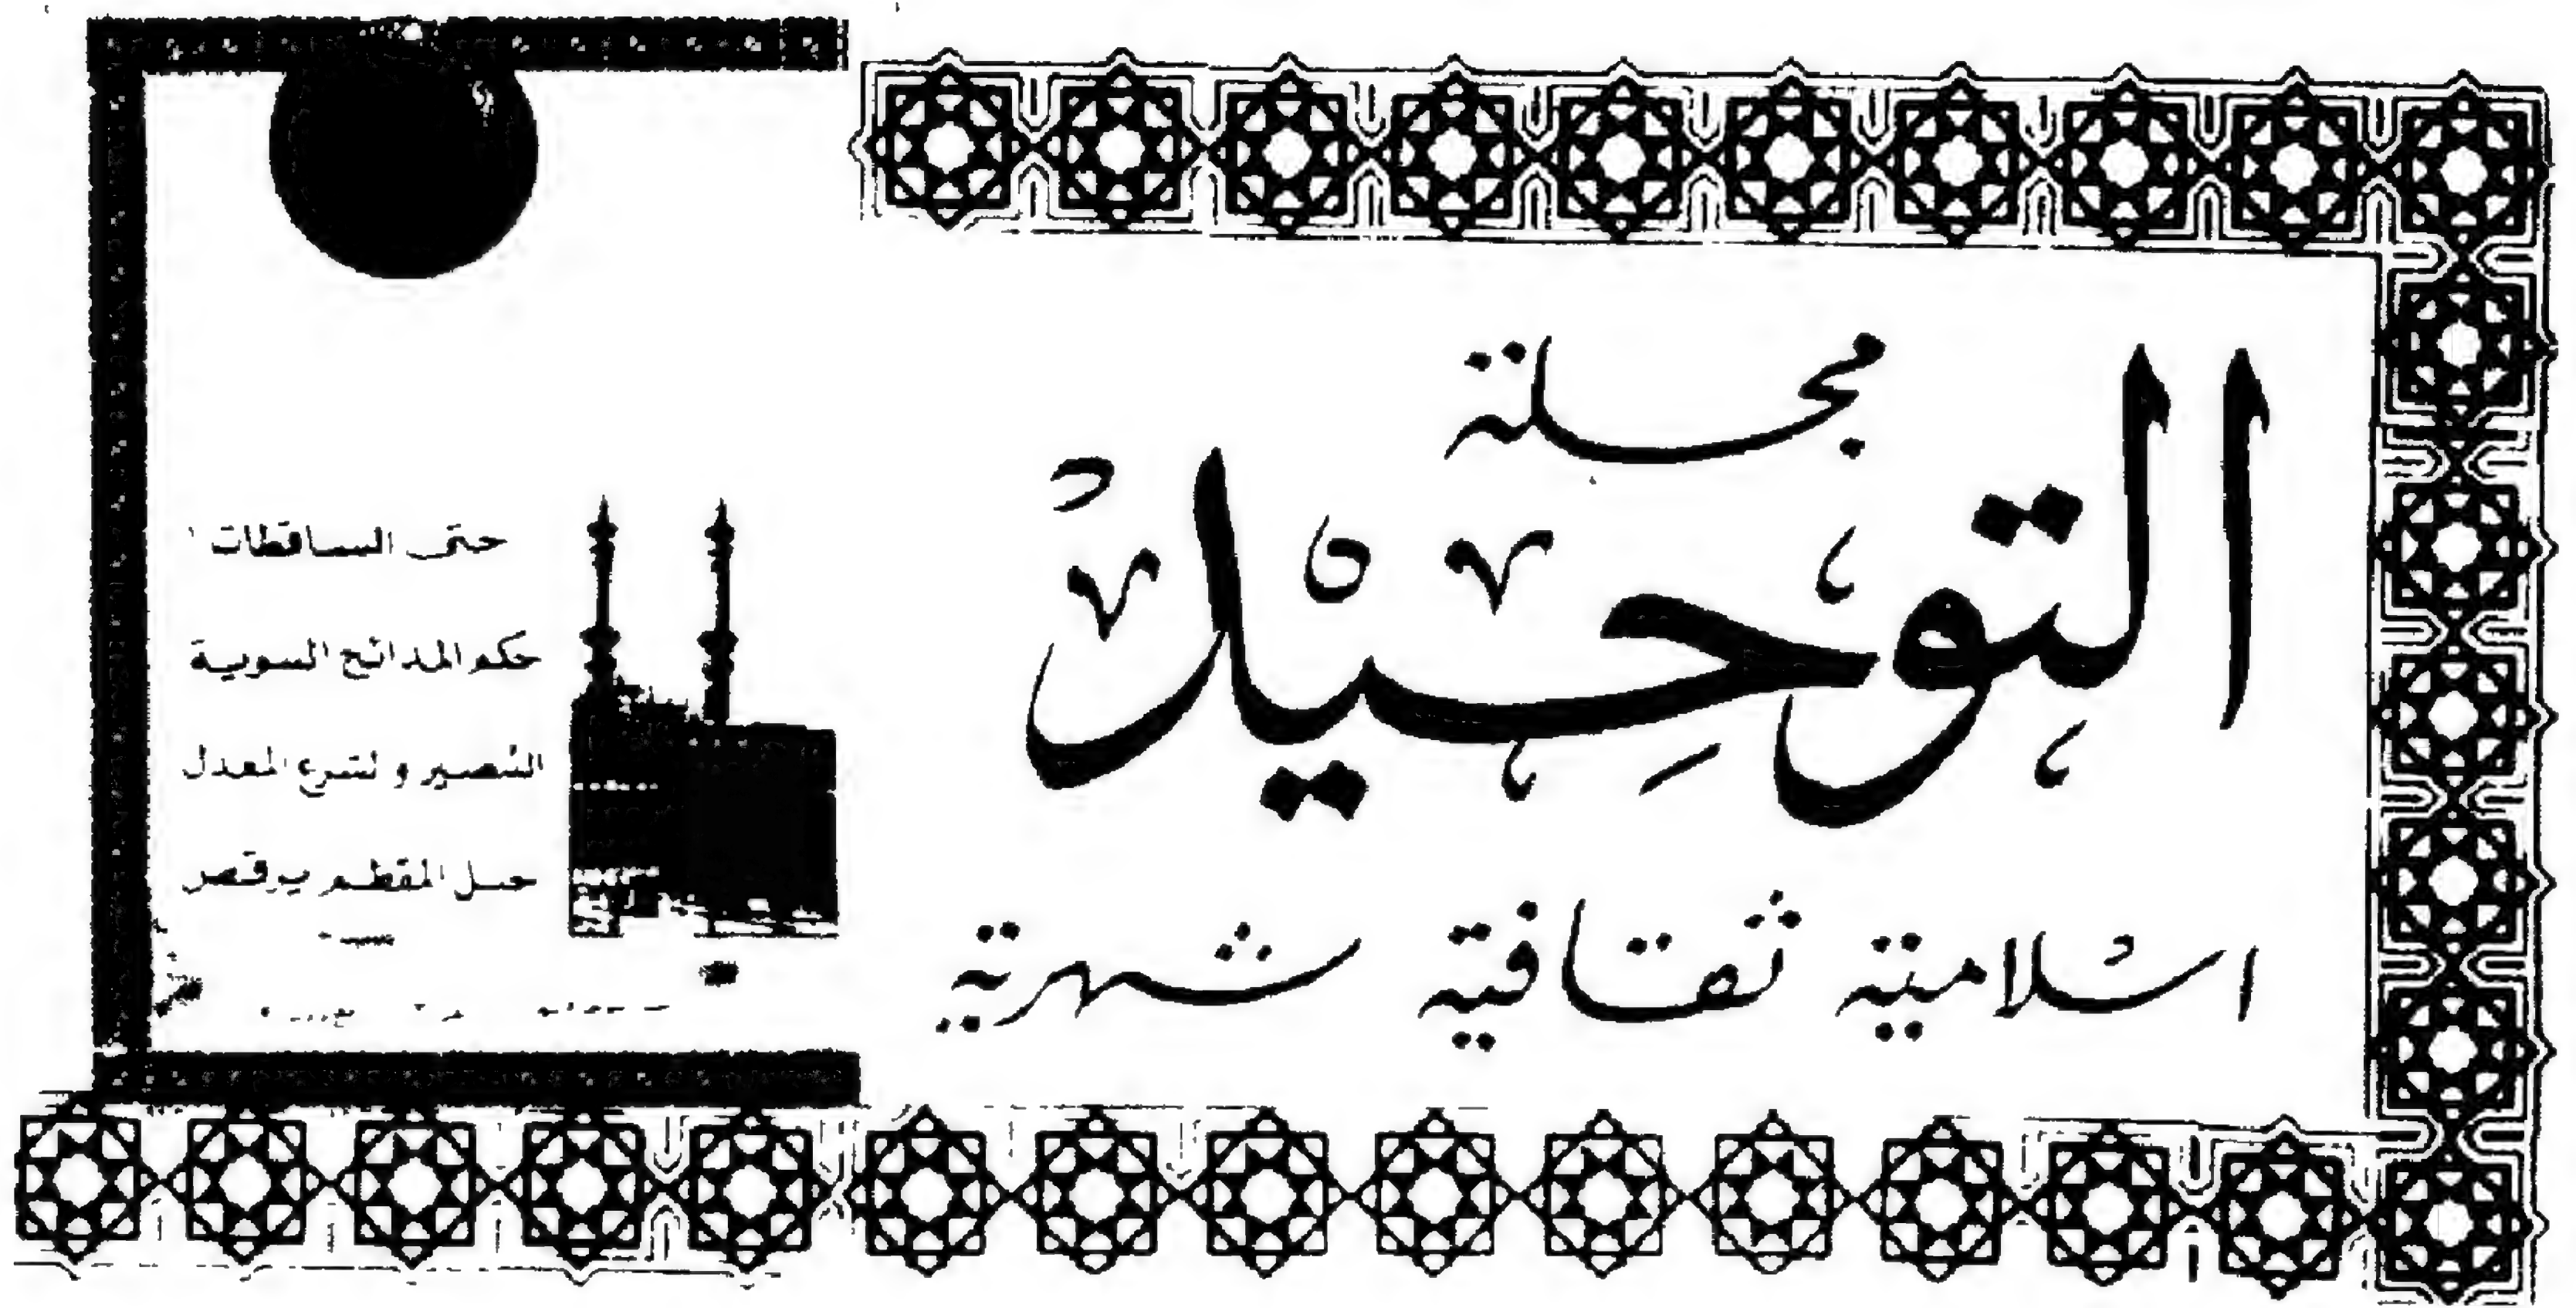 مجلة
التوحيد
اسلامية ثقافية شهرية
حتى الساقطات
حكم المدائح النبوية
التنصير و لشرع المعدل
جبل المقطم يرقص